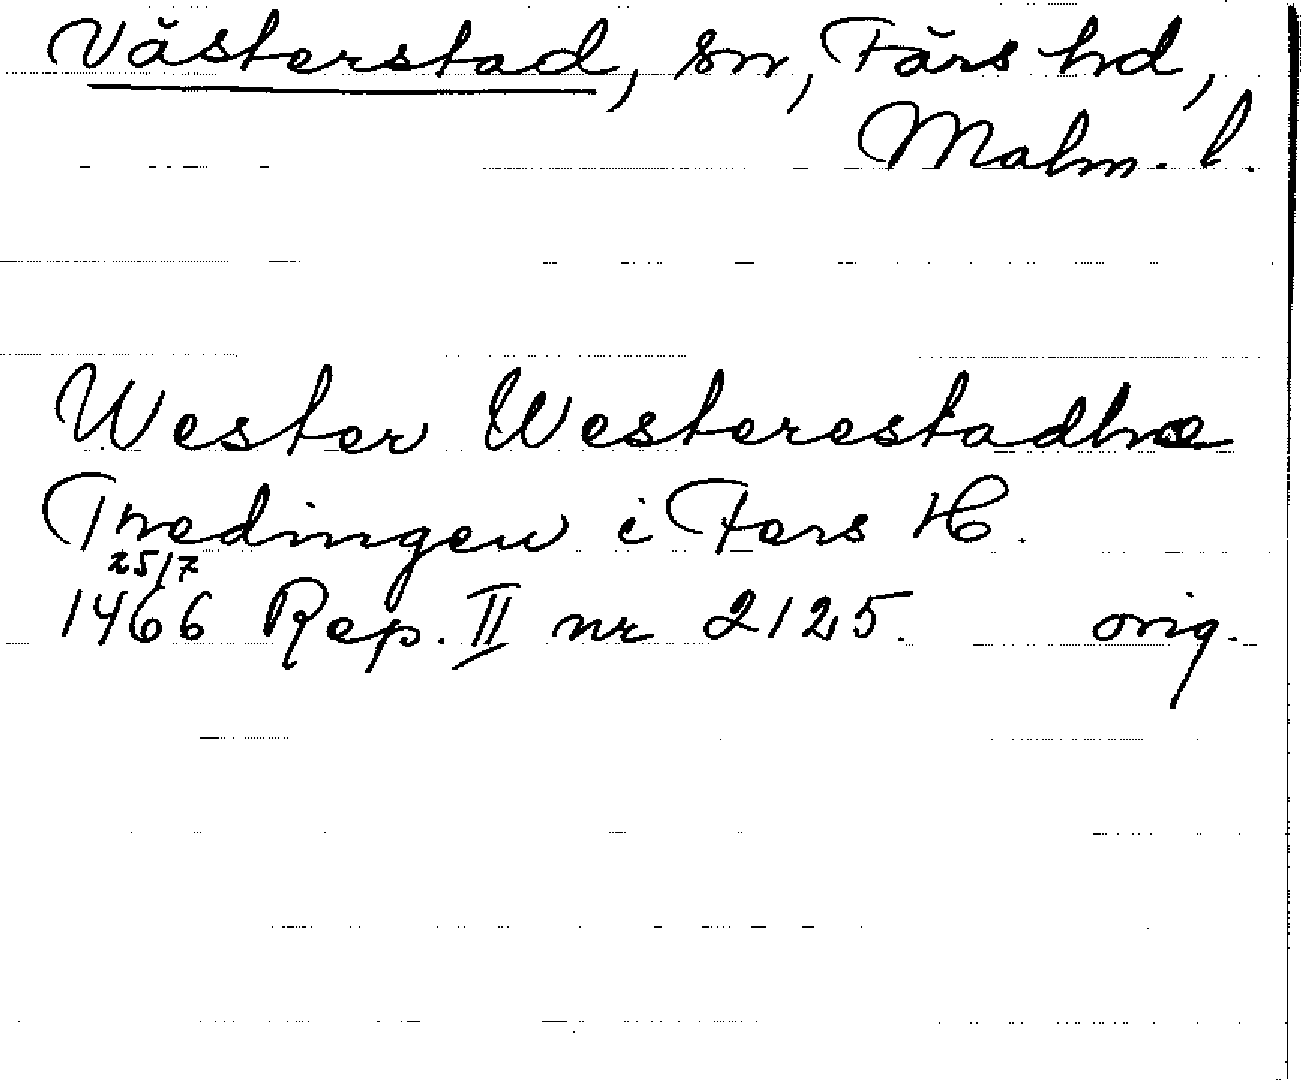 Västerstad, sn, Färs hd,
Malm. l.
Wester Westerestadhæ
Tredingen i Fers H.
25/7
1466 Rep. II nr 2125. orig.